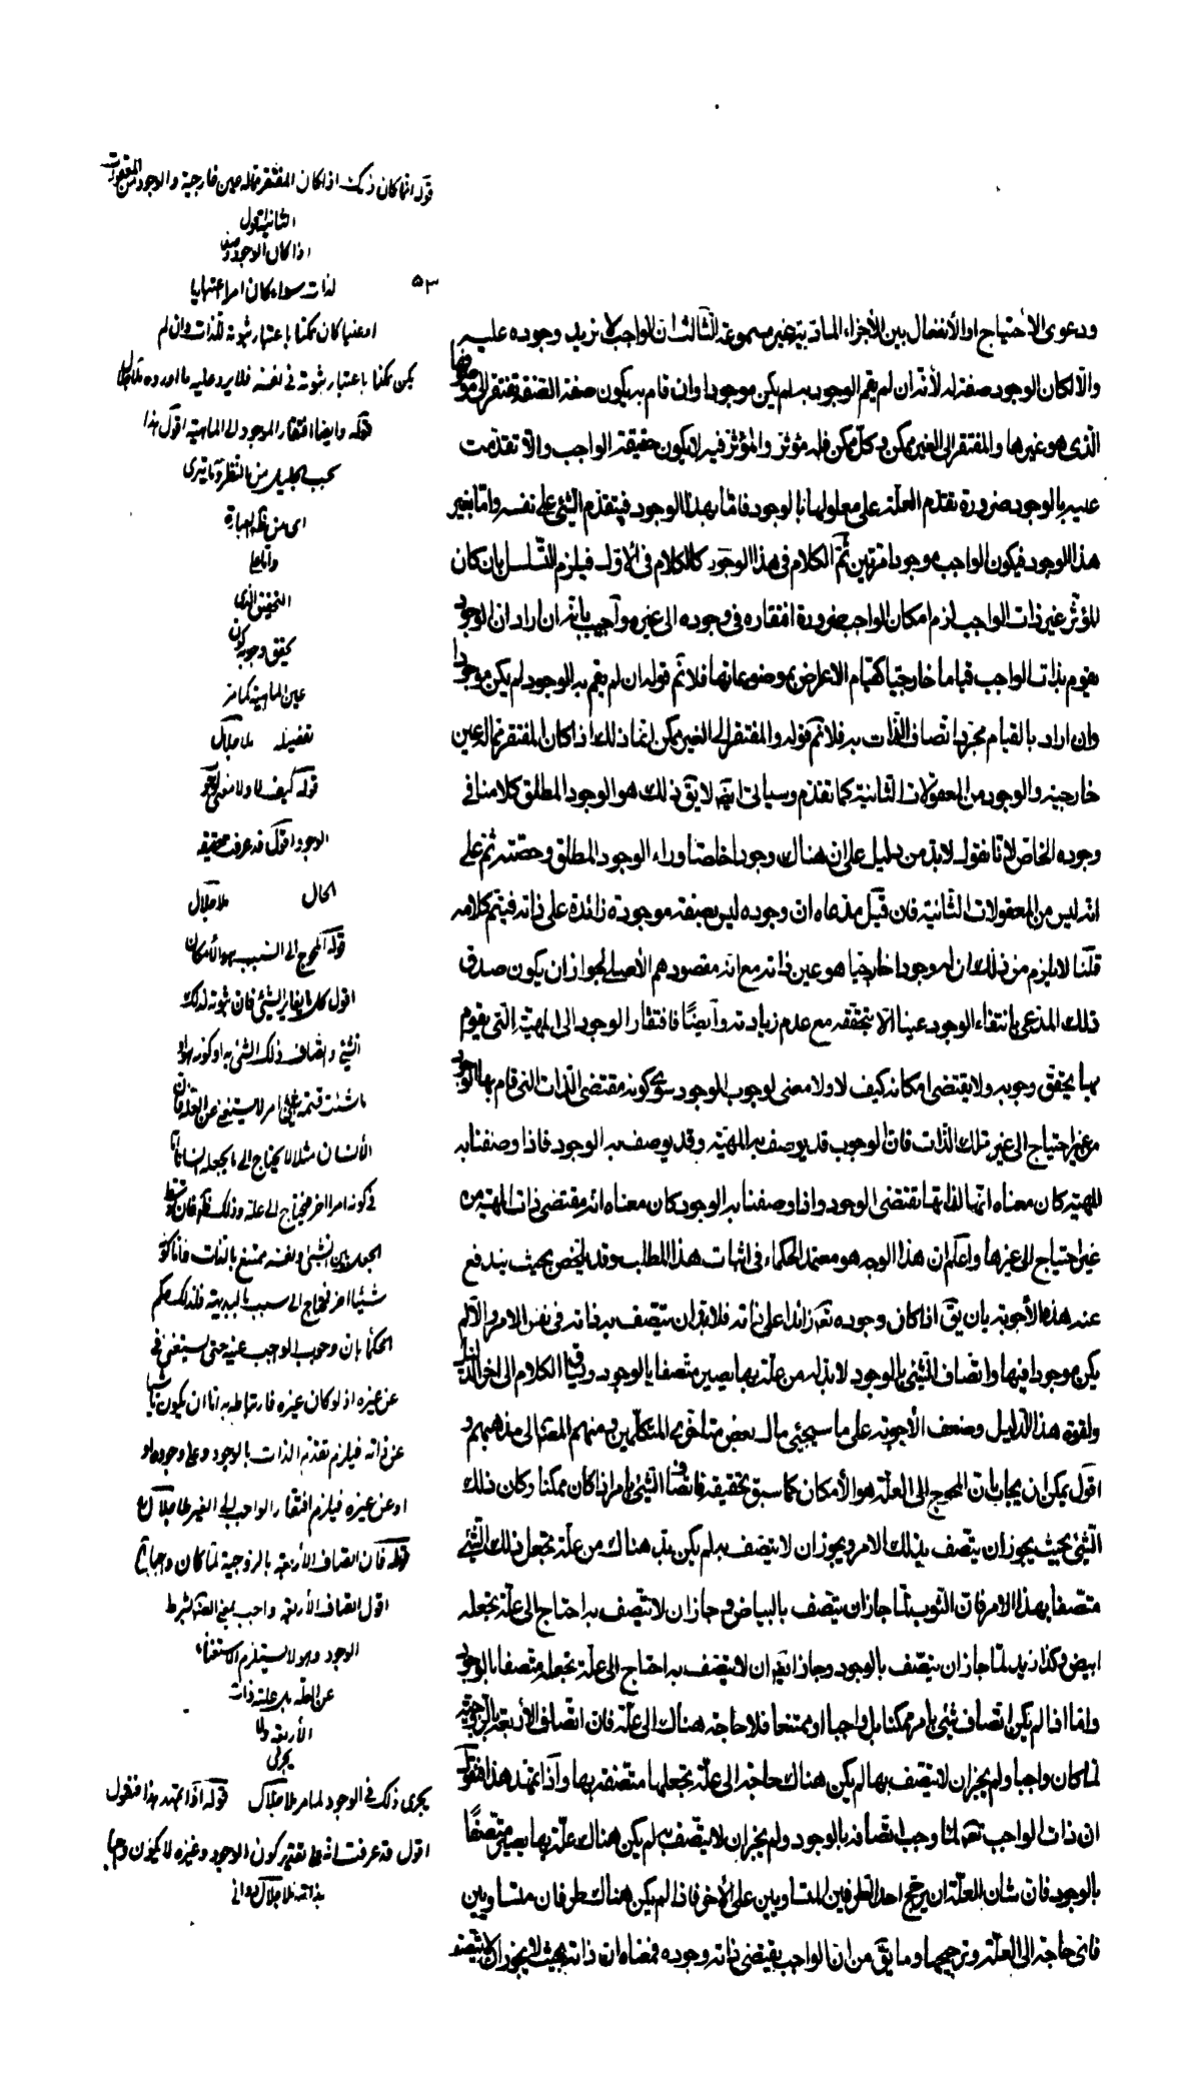 ودعوى الاحتياج او الانفعال بين الأجزاء المادية غير مسموعة الثالث ان الواجب لا تزيد وجوده عليه
والا لكان الوجود صفة له لأنه ان لم يقم الوجود به لم يكن موجودا وان قام به يكون صفة الصفة تفتقر الى موصوفها
الذى هو غيرها والمفتقر الى الغير ممكن وكل ممكن فله مؤثر والمؤثر فيه اما يكون حقيقة الواجب والا تقدمت
عليه بالوجود ضرورة تقدم العلة على معلولها بالوجود فاما بهذا الوجود فيتقدم الشئ على نفسه واما بغير
هذا الوجود فيكون الواجب موجودا مرتين ثم الكلام فى هذا الوجود كالكلام فى الأول فيلزم التسلسل بان كان
المؤثر غير ذات الواجب لزم امكان الواجب ضرورة افتقاره فى وجوده الى غيره وأجيب بانه ان اراد ان الوجود
يقوم بذات الواجب قياما خارجيا كقيام الاعراض بموضوعاتها فلا ثم قوله ان لم يقم به الوجود لم يكن موجودا
وان اراد بالقيام مجرد اتصاف الذات به فلا ثم قوله والمفتقر الى الغير ممكن انما ذلك اذا كان المفتقر مما له عين
خارجية والوجود من المعقولات الثانية كما تقدم وسيأتى ايضا لا يق ذلك هو الوجود المطلق كلامنا فى
وجوده الخاص لانا نقول لا بد من دليل على ان هناك وجودا خاصا وراء الوجود المطلق وحصته ثم على
انه ليس من المعقولات الثانية فان قيل مدعاه ان وجوده ليس بصفة موجودة زائدة على ذاته فيتم كلامه
قلنا لا يلزم من ذلك ان له وجودا خارجيا هو عين ذاته مع انه مقصودهم الأصلى لجواز ان يكون صدق
ذلك المدعى بانتفاء الوجود عينا لا بتحققه مع عدم زيادته وأيضا فافتقار الوجود الى المهية التى يقوم
بها يحقق وجوبه ولا يقتضى امكانه كيف لا ولا معنى لوجوب الوجود سوى كونه مقتضى الذات التى قام بها الوجود
من غير احتياج الى غير تلك الذات فان الوجوب قد يوصف به المهية وقد يوصف به الوجود فاذا وصفنا به
المهية كان معناه انها لذاتها تقتضى الوجود واذا وصفنا به الوجود كان معناه انه مقتضى ذات المهية من
غير احتياج الى غيرها واعلم ان هذا الوجه هو معتمد الحكماء فى اثبات هذا المطلب وقد يلخص بحيث يندفع
عنه هذه الأجوبة بان يق اذا كان وجوده تعه زائدا على ذاته فلا بد ان تتصف به ذاته فى نفس الامر والا لم
يكن موجودا فيها واتصاف الشئ بالوجود لا بد له من علة بها يصير متصفا بالوجود وفيها الكلام الى اخر الدليل
ولقوة هذا الدليل وضعف الأجوبة على ما سيجئ مال بعض متاخرى المتكلمين ومنهم المص الى مذهبهم و
اقول يمكن ان يجاب بان المحوج الى العلة هو الأمكان كما سبق تحقيقه فاتصاف الشئ بامر اذا كان ممكنا وكان ذلك
الشئ بحيث يجوز ان يتصف بذلك الامر ويجوز ان لا يتصف به لم يكن بد هناك من علة تجعل ذلك الشئ
متصفا بهذا الامر فان الثوب لما جاز ان يتصف بالبياض وجاز ان لا يتصف به احتاج الى علة تجعله
ابيض وكذا زيد لما جاز ان يتصف بالوجود وجاز ايضا ان لا يتصف به احتاج الى علة تجعله متصفا بالوجود
واما اذا لم يكن اتصاف شئ بامر ممكنا بل واجبا او ممتنعا فلا حاجة هناك الى علة فان اتصاف الأربعة بالزوجية
لما كان واجبا ولم يجز ان لا يتصف بها لم يكن هناك حاجة الى علة تجعلها متصفة بها واذا تمهد هذا فنقول
ان ذات الواجب تعه لما وجب اتصافه بالوجود ولم يجز ان لا يتصف به لم يكن هناك علة بها يصير متصفا
بالوجود فان شان العلة ان يرجح احد الطرفين المتساويين على الأخر فاذا لم يكن هناك طرفان متساويين
فاى حاجة الى العلة وترجيحها وما يق من ان الواجب يقتضى ذاته وجوده فمعناه ان ذاته بحيث لا يجوز ان لا يتصف
٥٣
قوله انما كان ذلك اذا كان المفتقر مما له عين خارجية والوجود من المعقولات
الثانية اقول
اذا كان الوجود وصفا
لذات سواء كان امرا اعتباريا
او عينيا كان ممكنا باعتبار ثبوته للذات وان لم
يكن ممكنا باعتبار ثبوته فى نفسه فلا يرد عليه ما اورده ملا جلال
قوله وايضا افتقار الوجود الى الماهية اقول هذا
بحسب الجليل من النظر وما ترى
اى من ظاهر العبارة
واما على
التحقيق الذى
يحقق وجوبه كون
عين الماهية كما مر
تفصيله ملا جلال
قوله كيف لا ولا معنى لوجوب
الوجود اقول قد عرفت حقيقة
الحال ملا جلال
قوله المحوج الى السبب هو الأمكان
اقول كل ما يغاير الشئ فان ثبوته لذلك
الشئ واتصاف ذلك الشئ به او كونه هو او
ما شئت فسمه على امر لا يستغنى عن العلة فان
الأنسان مثلا لا يحتاج الى ما يجعله انسانا
فى كونه امرا اخر يحتاج الى علة وذلك لان توسط
الجعل بين الشئ ونفسه ممتنع بالذات فاما كونه
شيئا اخر فيحتاج الى سبب بالبديهة فلذلك حكم
الحكماء بان وجوب الواجب عينه حتى يستغنى فى
عن غيره اذ لو كان غيره فارتباطه به اما ان يكون ناشئا
عن ذاته فيلزم تقدم الذات بالوجود وعلى وجوده او
او عن غيره فيلزم افتقار الواجب الى الغير ملا جلال
قوله فان اتصاف الأربعة بالزوجية لما كان واجبا
اقول اتصاف الأربعة واجب بمعنى الضرورة بشرط
الوجود وهو لا يستلزم الاستغناء
عن العلة بل علته ذات
الأربعة ولا
يجرى
يجرى ذلك فى الوجود لما مر ملا جلال قوله اذا تمهد هذا فنقول
اقول قد عرفت انه على تقدير كون الوجود وغيره لا يكون واجبا
بذاته ملا جلال دوانى